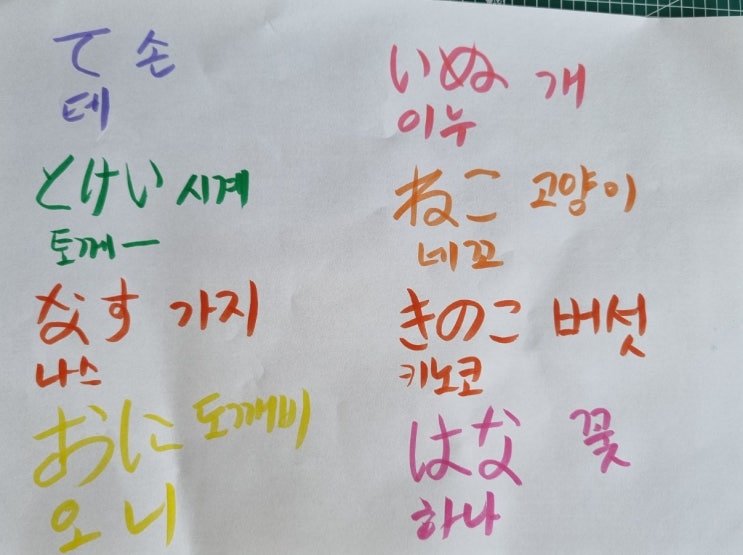 て 손
테
とけい 시계
토께ー
なす 가지
나스
おに 도깨비
오니
いぬ 개
이누
ねこ 고양이
네꼬
きのこ 버섯
키노코
はな 꽃
하나